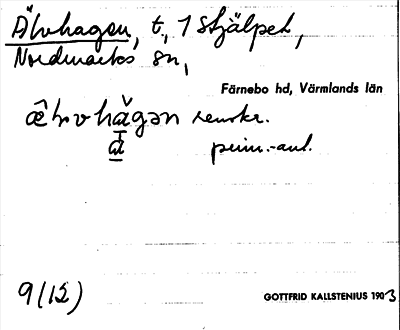 Älvhagen, t, 1 Stjälpet,
Nordmarks sn,
Färnebo hd, Värmlands län
hågən
a
prim.-aul.
9(12)
GOTTFRID KALLSTENIUS 1903